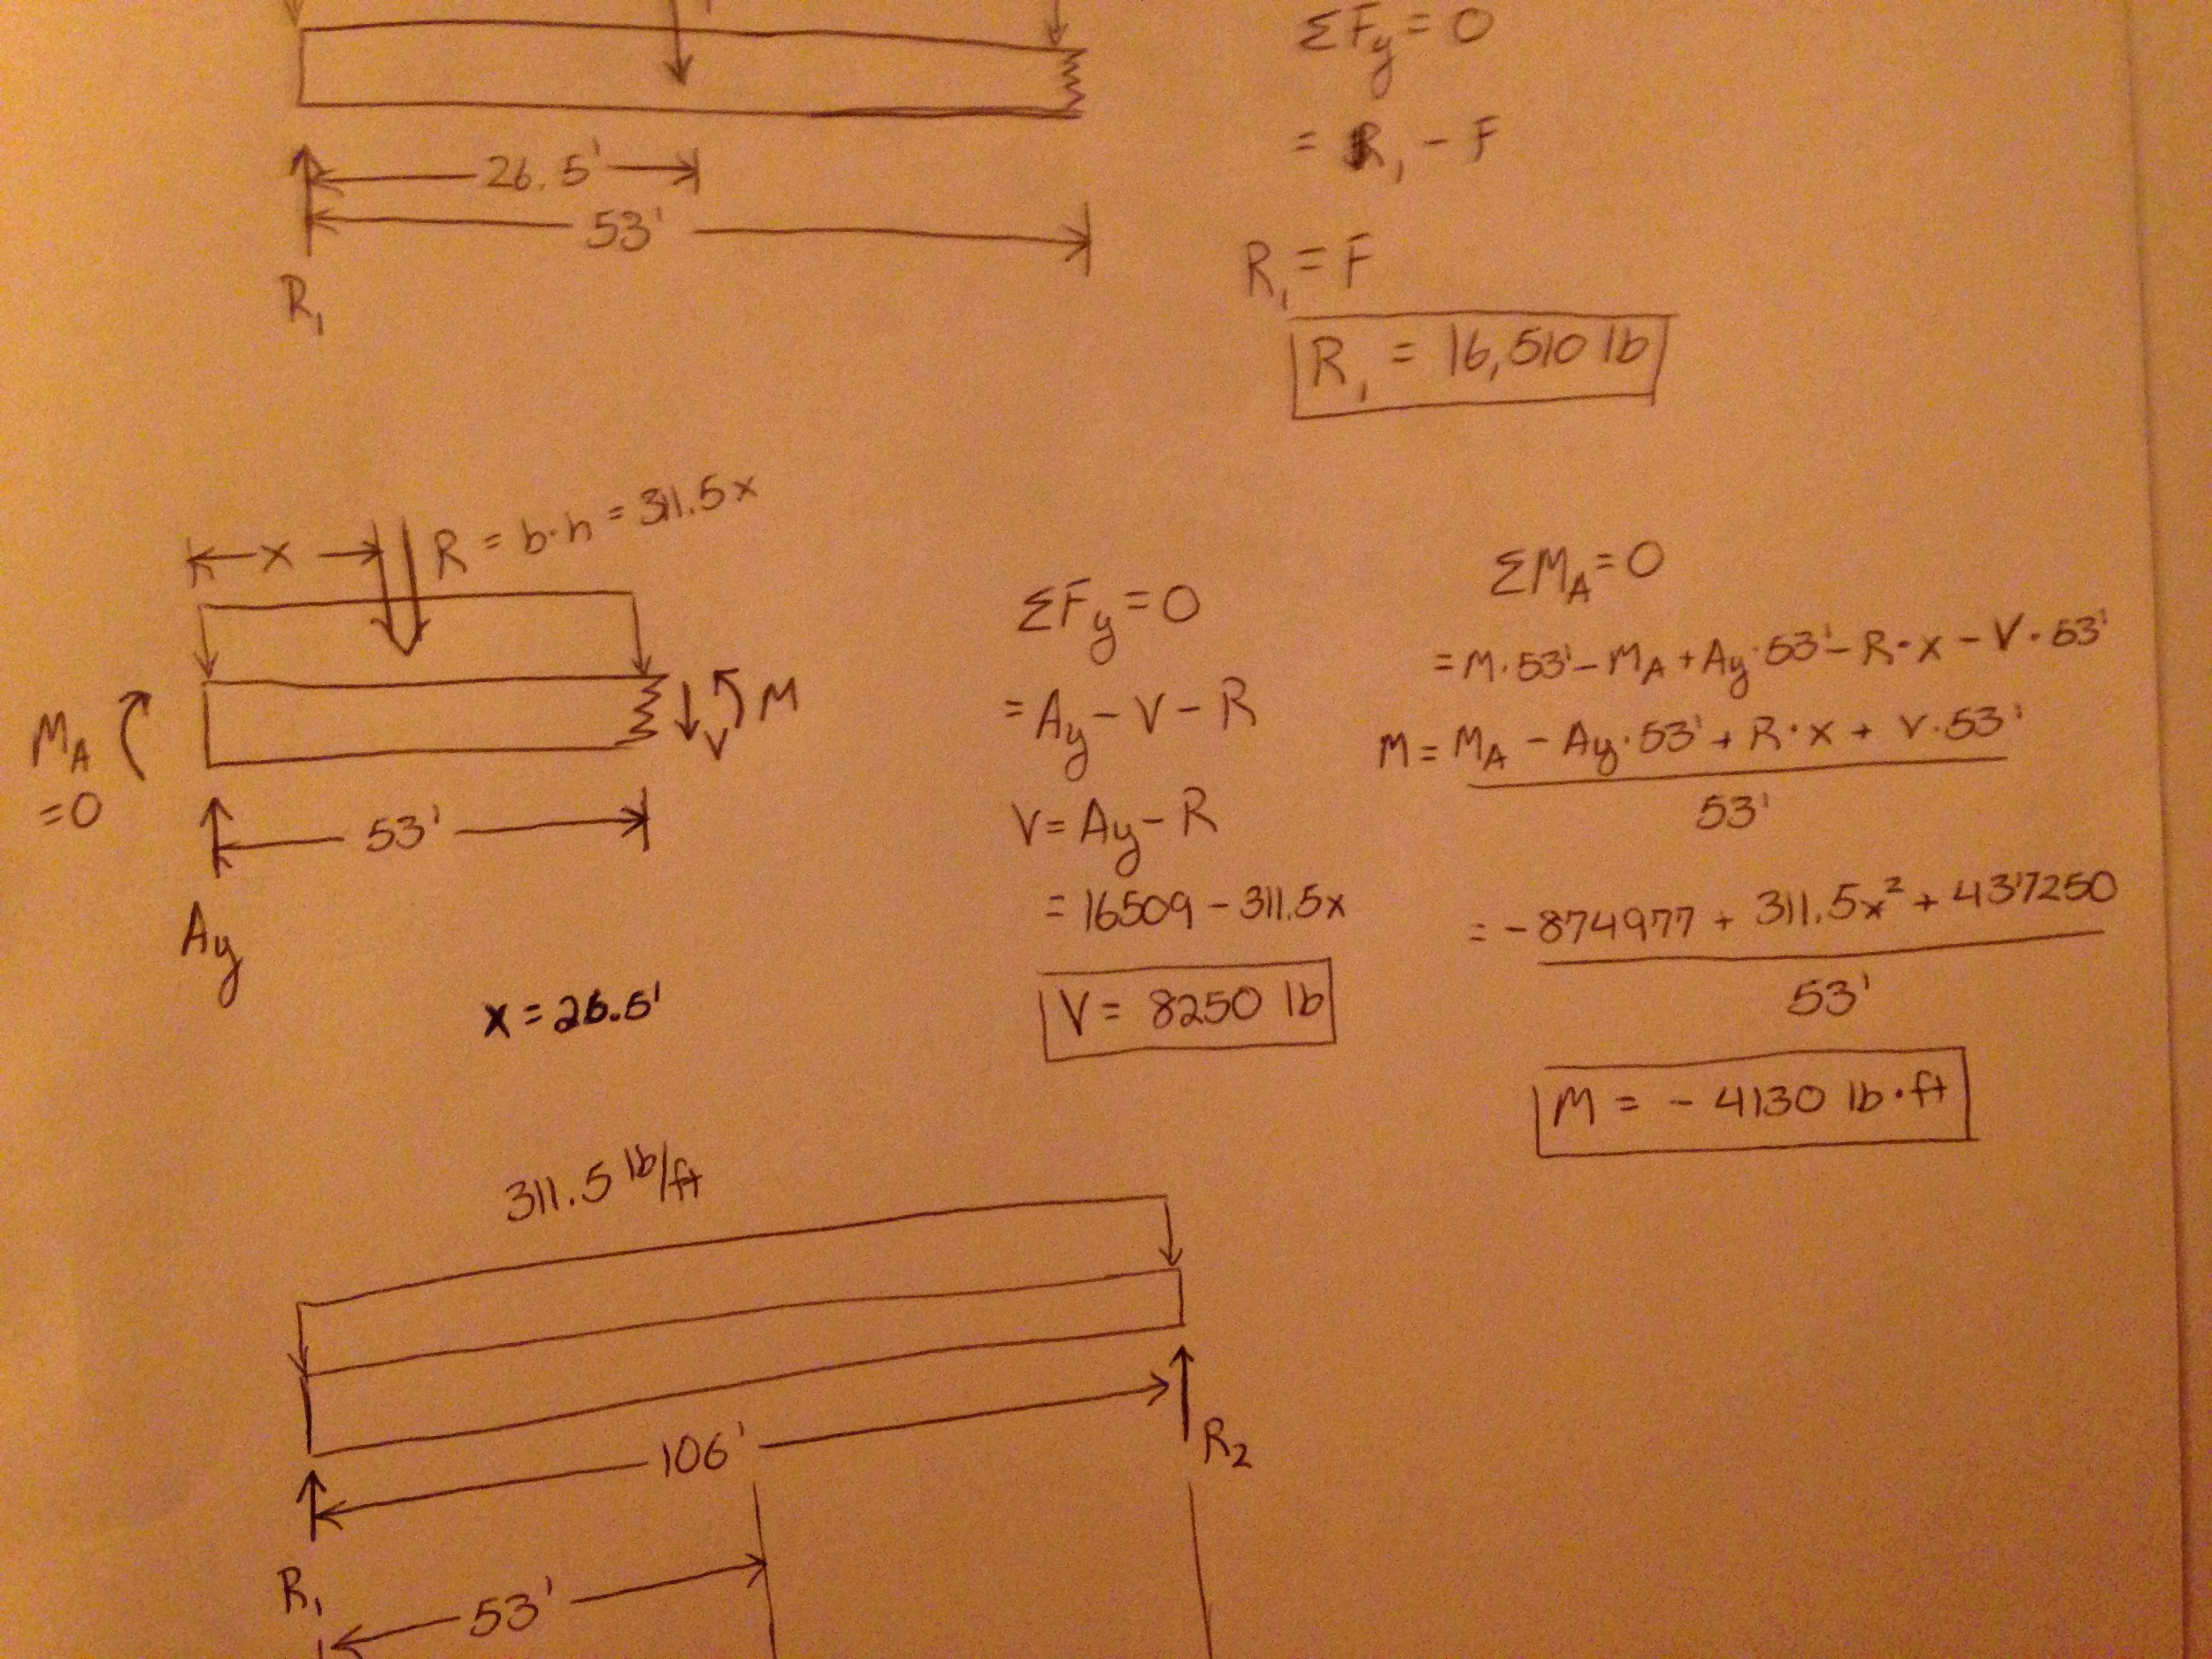 ΣFy = 0
= R₁ - F
26.5'
53'
R₁
R₁ = F
R₁ = 16,510 lb
x
R = b·h = 311.5x
MA
=0
V
M
53'
Ay
x = 26.5'
ΣFy = 0
= Ay - V - R
V = Ay - R
= 16509 - 311.5x
V = 8250 lb
ΣMA = 0
= M·53' - MA + Ay·53' - R·x - V·53'
M = MA - Ay·53' + R·x + V·53'
53'
= -874977 + 311.5x² + 437250
53'
M = - 4130 lb·ft
311.5 lb/ft
106'
R₂
R₁
53'